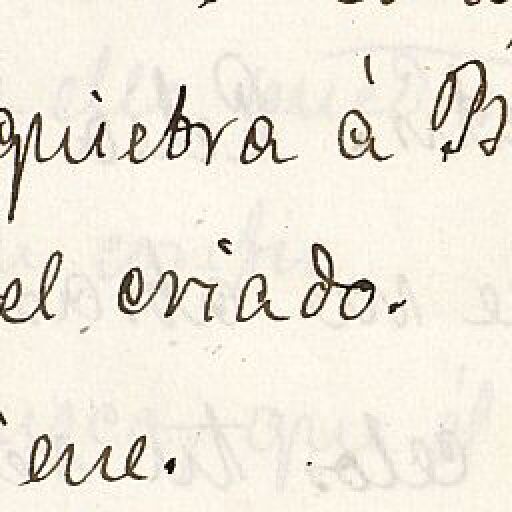 quiebra á B
el criado.
iene.